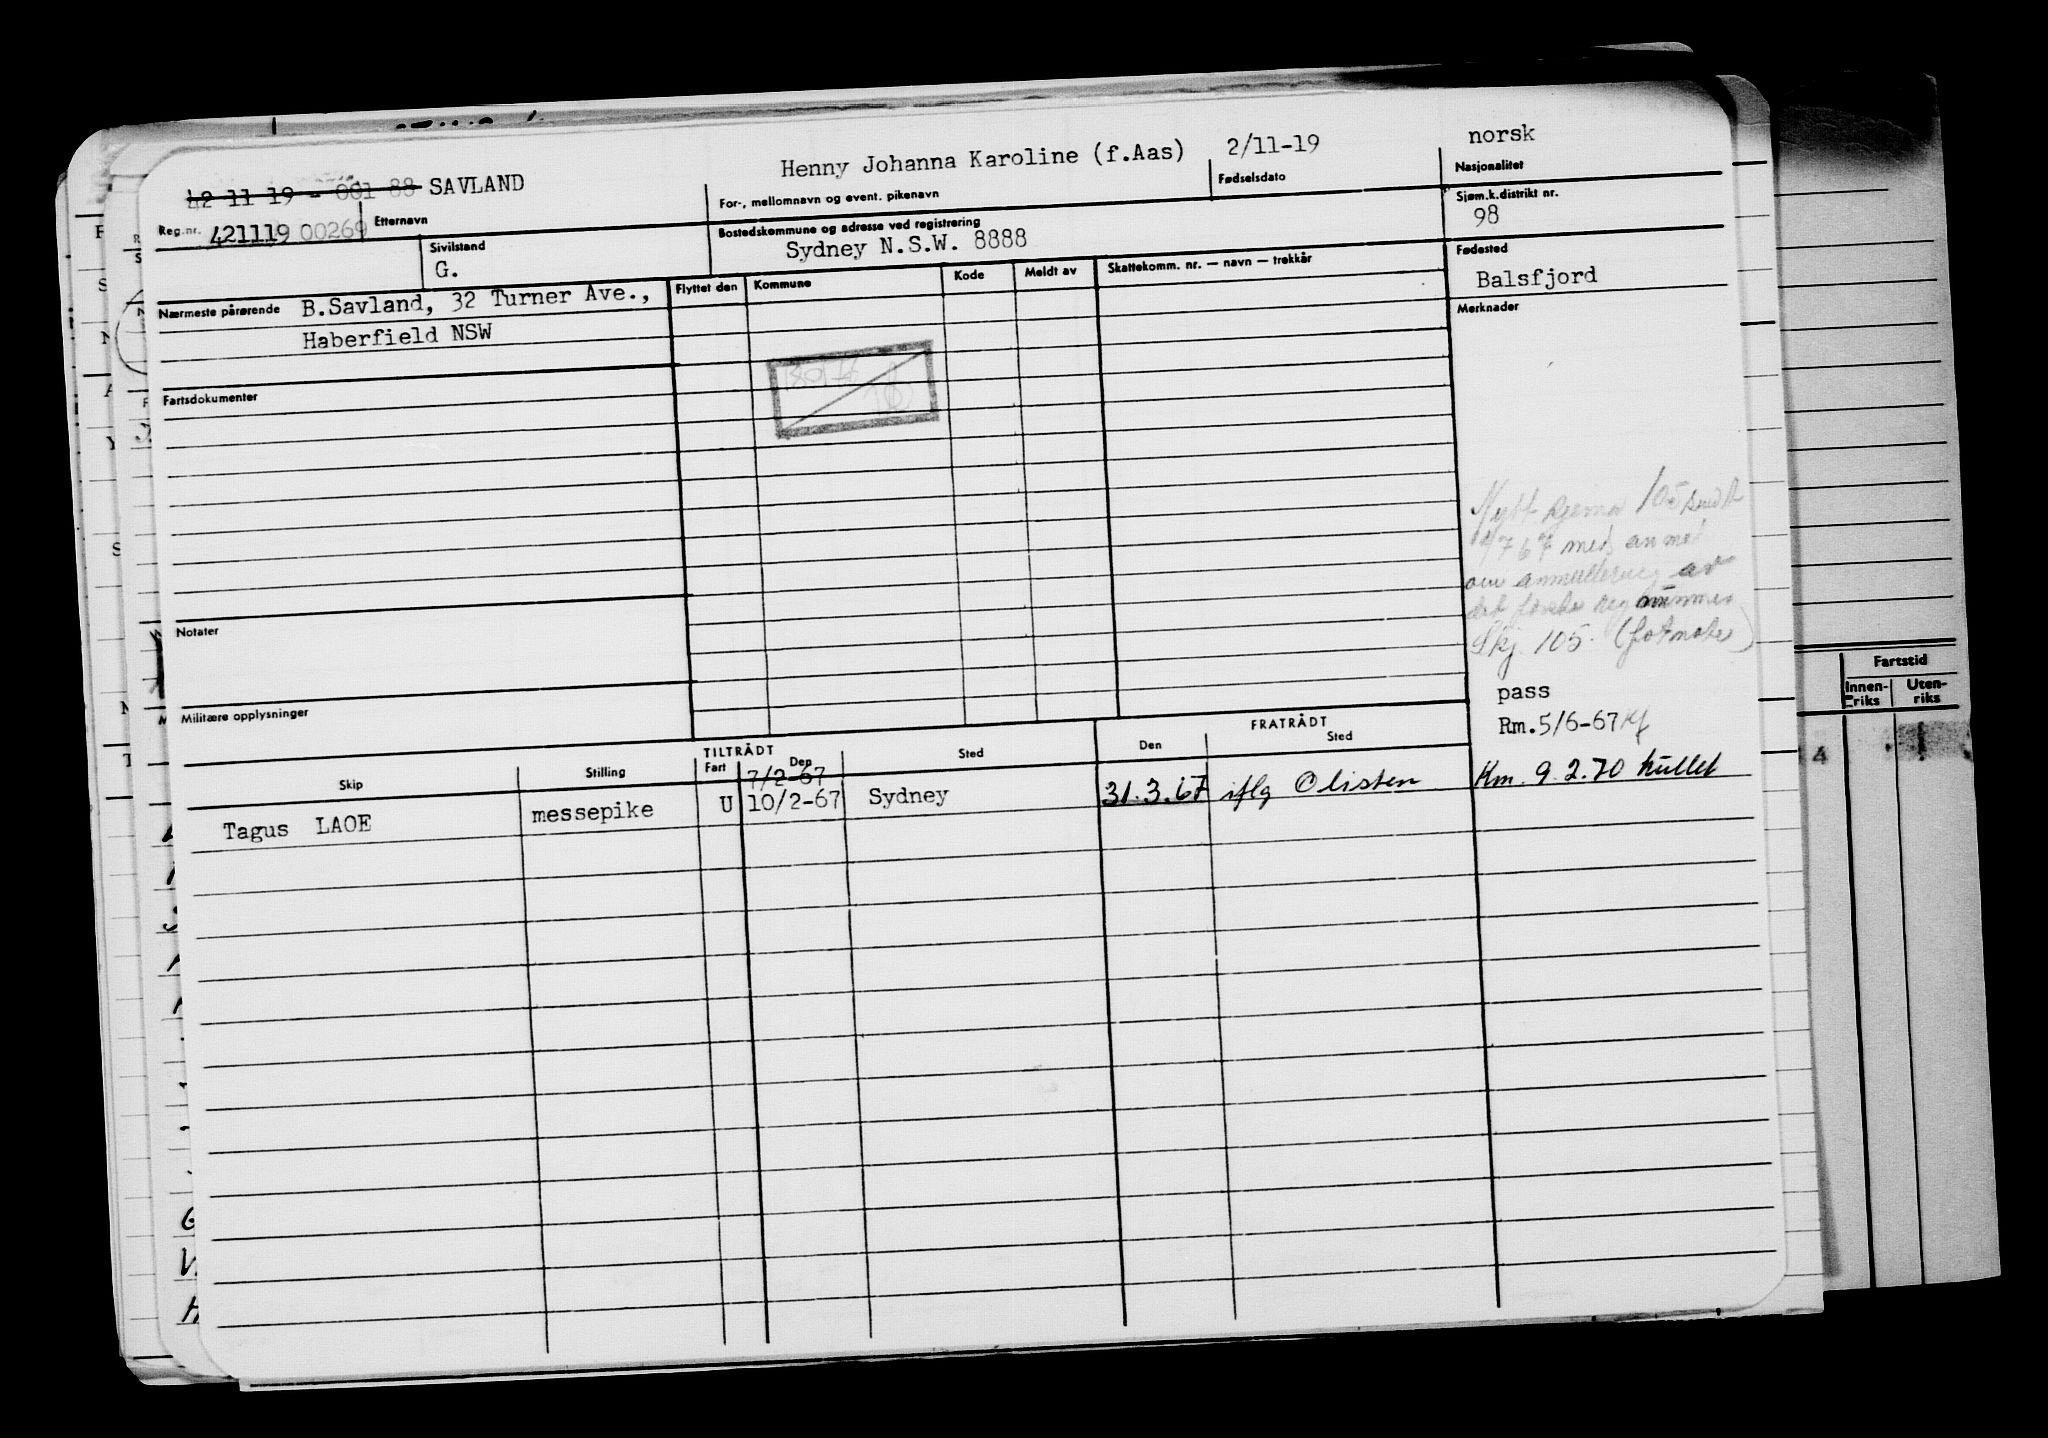 norsk
Henny Johanna Karoline (f.Aas) 2/11-19
42 11 19 - 001 88 SAVLAND
Nasjonalitet
Fødselsdato
For-, mellomnavn og event. pikenavn
Sjøm.k.distrikt nr.
98
Reg.nr. 421119 00269 Etternavn
Bostedskommune og adresse ved registrering
Sydney N.S.W. 8888
Sivilstand
G.
Fødested
Balsfjord
Flyttet den Kommune Kode Meldt av Skattekomm. nr. — navn — trekkår
Nærmeste pårørende B.Savland, 32 Turner Ave.,
Haberfield NSW
Merknader
Fartsdokumenter
Nytt
med
om annullering av
det første reg nummer
Skj. 105. (fotnote)
Notater
pass
Rm.5/6-67
Militære opplysninger
TILTRÅDT FRATRÅDT
Skip Stilling Fart Den Sted Den Sted
7/2-67
Tagus LAOE messepike U 10/2-67 Sydney 31.3.67 iflg O listen Km. 9.2.70 hullet
Fartstid
Innen-
riks
Uten-
riks
4